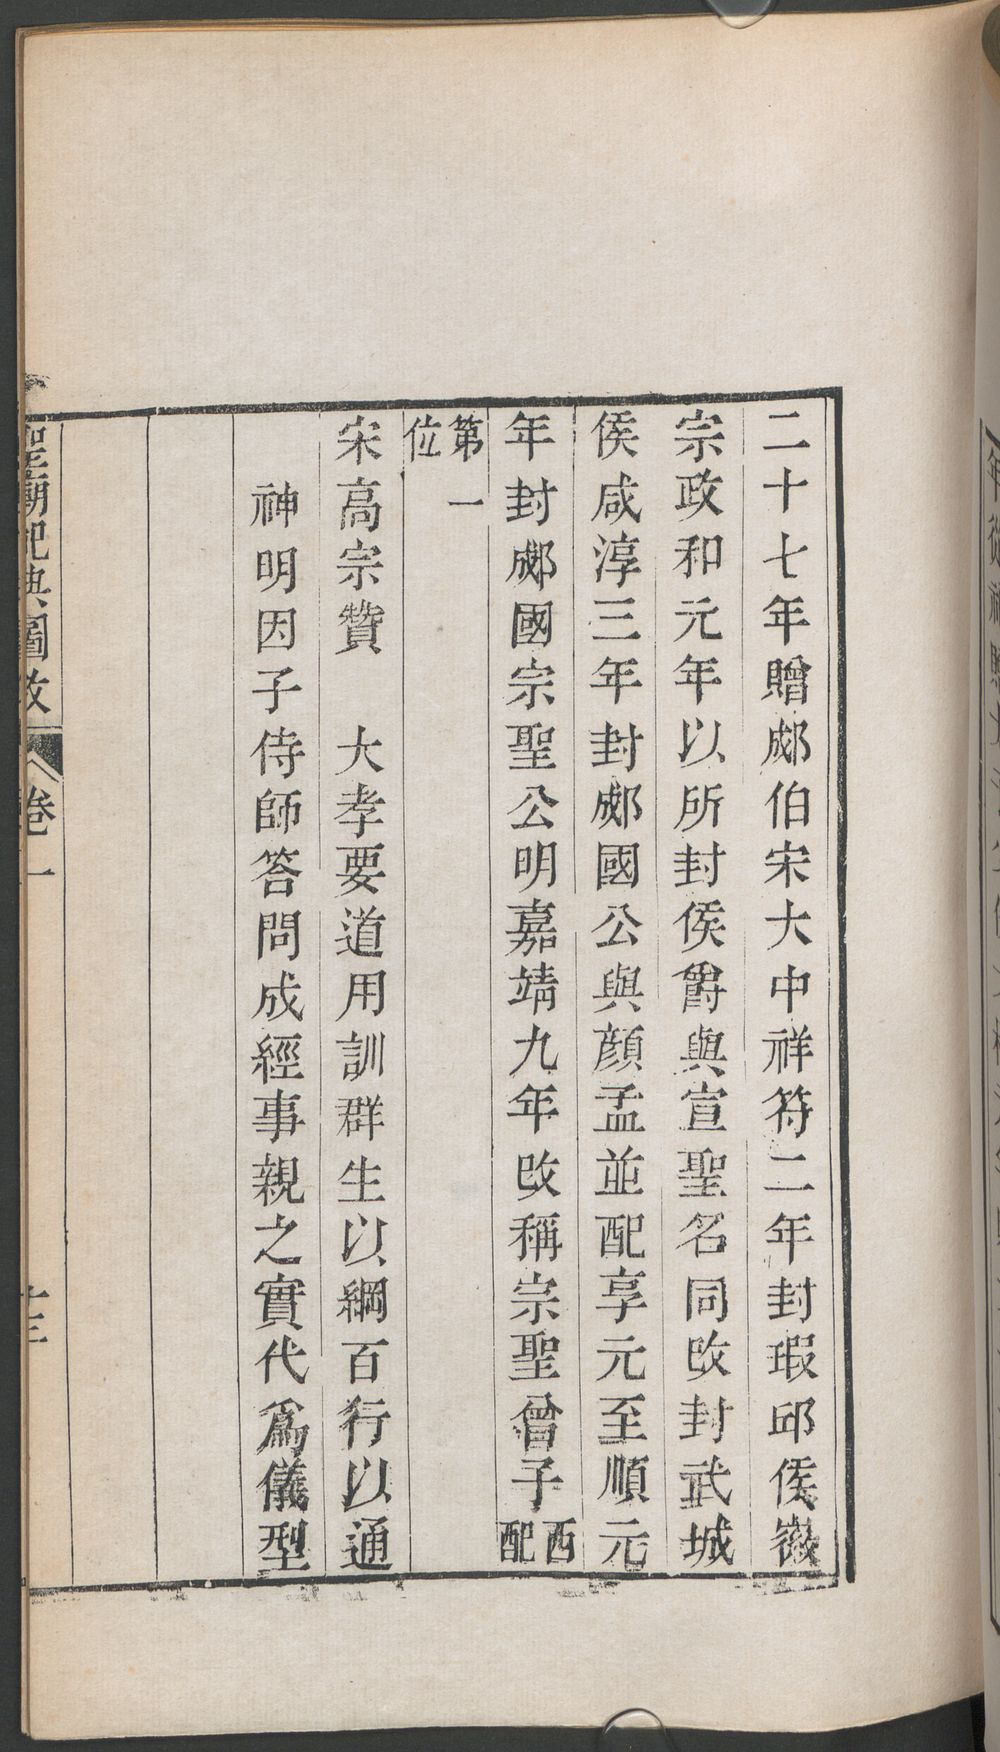 二十七年贈郕伯宋大中祥符二年封瑕邱侯徽
宗政和元年以所封侯爵與宣聖名同改封武城
侯咸淳三年封郕國公與顏孟並配享元至順元
年封郕國宗聖公明嘉靖九年改稱宗聖曾子西配
第一位
宋高宗贊　大孝要道用訓群生以綱百行以通
神明因子侍師答問成經事親之實代爲儀型
聖廟祀典圖攷
卷一
十三